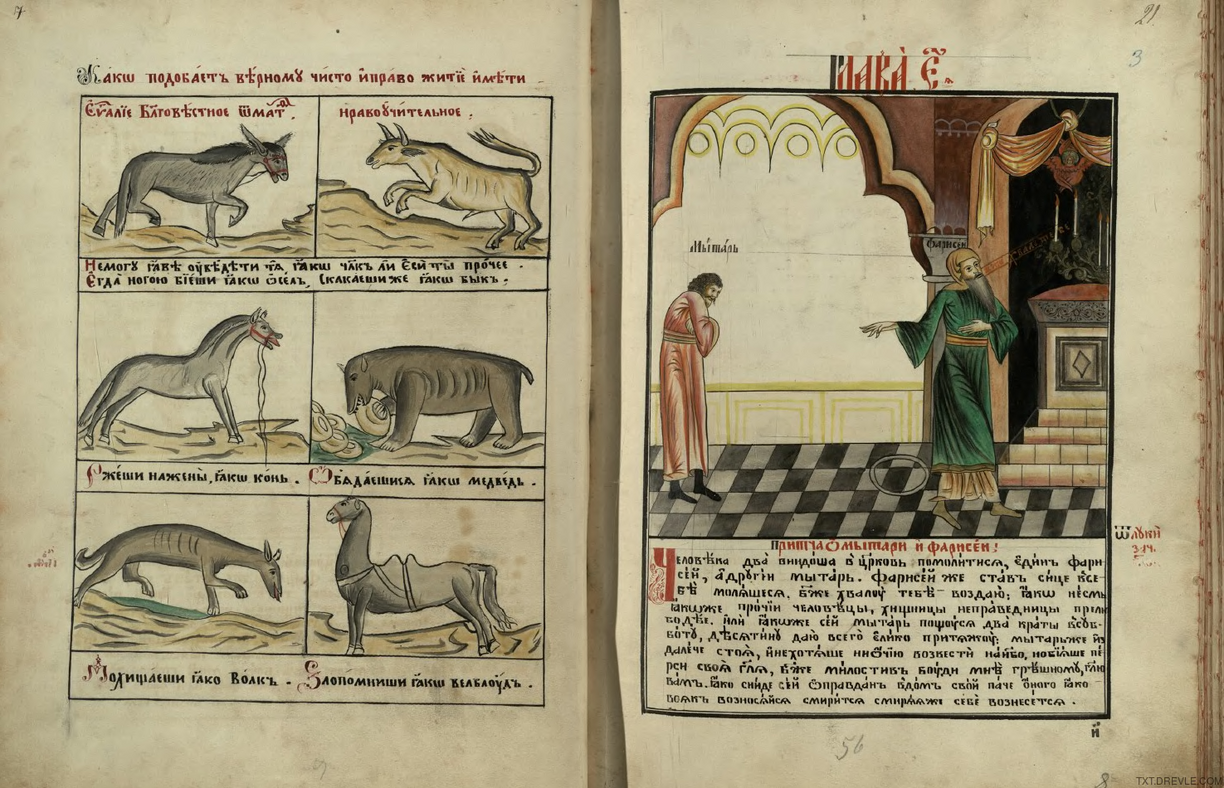 Какѡ подобаетъ вѣрному чисто и҆право житїѐ и҆мѣти
Єѵⷢ҇алїе Бл҃говѣстное ѿматⷴ҇.
нравоꙋчи́тельное.
Немогꙋ ꙗ҆вѣ оу҆вѣдѣти тѧ̀, ꙗ҆́кѡ чл҃къ ли є҆сѝ ты̀ про́чее.
Е҆гда̀ ногою бїеши ꙗ҆кѡ ѻ҆селъ, скакаешиже ꙗ҆́кѡ быкъ.
Ржеши нажены̀, ꙗ҆́кѡ конь.
Ѡ҆бꙗдаешисѧ ꙗ҆кѡ медвѣдь.
Похищаеши ꙗ҆́ко Волкъ.
Ѕлопомниши ꙗ҆́кѡ велблоудъ.
7
21
3
глава̀ є҃ѧ
Мы́тарь
фарисеи
При́тча ѡ҆мытари и҆ фарисеи:
ѿлꙋки
зач.
Человѣка два̀ внидоша в̾ цр҃ковь помолитисѧ, є҆ди́нъ фари
се́й, а҆дрꙋгі́й мытарь. фарисей же ставъ сице в̾се
бѣ̀ молѧшесѧ, бж҃е хвалꙋ̀ тебѣ̀ воздаю̀: ꙗ҆́кѡ нѣсмь
ꙗ҆́коже про́чїи человѣцы, хищницы неправедницы прелю
бодѣе, и҆лѝ ꙗ҆́коже се́й мытарь пощꙋсѧ два краты всꙋб
вотꙋ, десѧтинꙋ даю̀ всего̀ є҆лико притѧжꙋ: мытарьже и҆з
далече стоѧ̀, и҆нехотѧше ни ѻ҆чїю возвестѝ на́нбо, но бїѧше пе
рси своѧ̀ гл҃ѧ, бж҃е милостивъ боуди мнѣ̀ грѣшномꙋ, гл҃ю
вамъ. ꙗ҆́ко сниде се́й ѡ҆правданъ вдомъ свой паче ѻ҆ного ꙗ҆ко
всѧкъ возносѧ́йсѧ смиритсѧ смирѧѧже себѐ вознесетсѧ.
и҃
56
8
TXT.DREVLE.COM